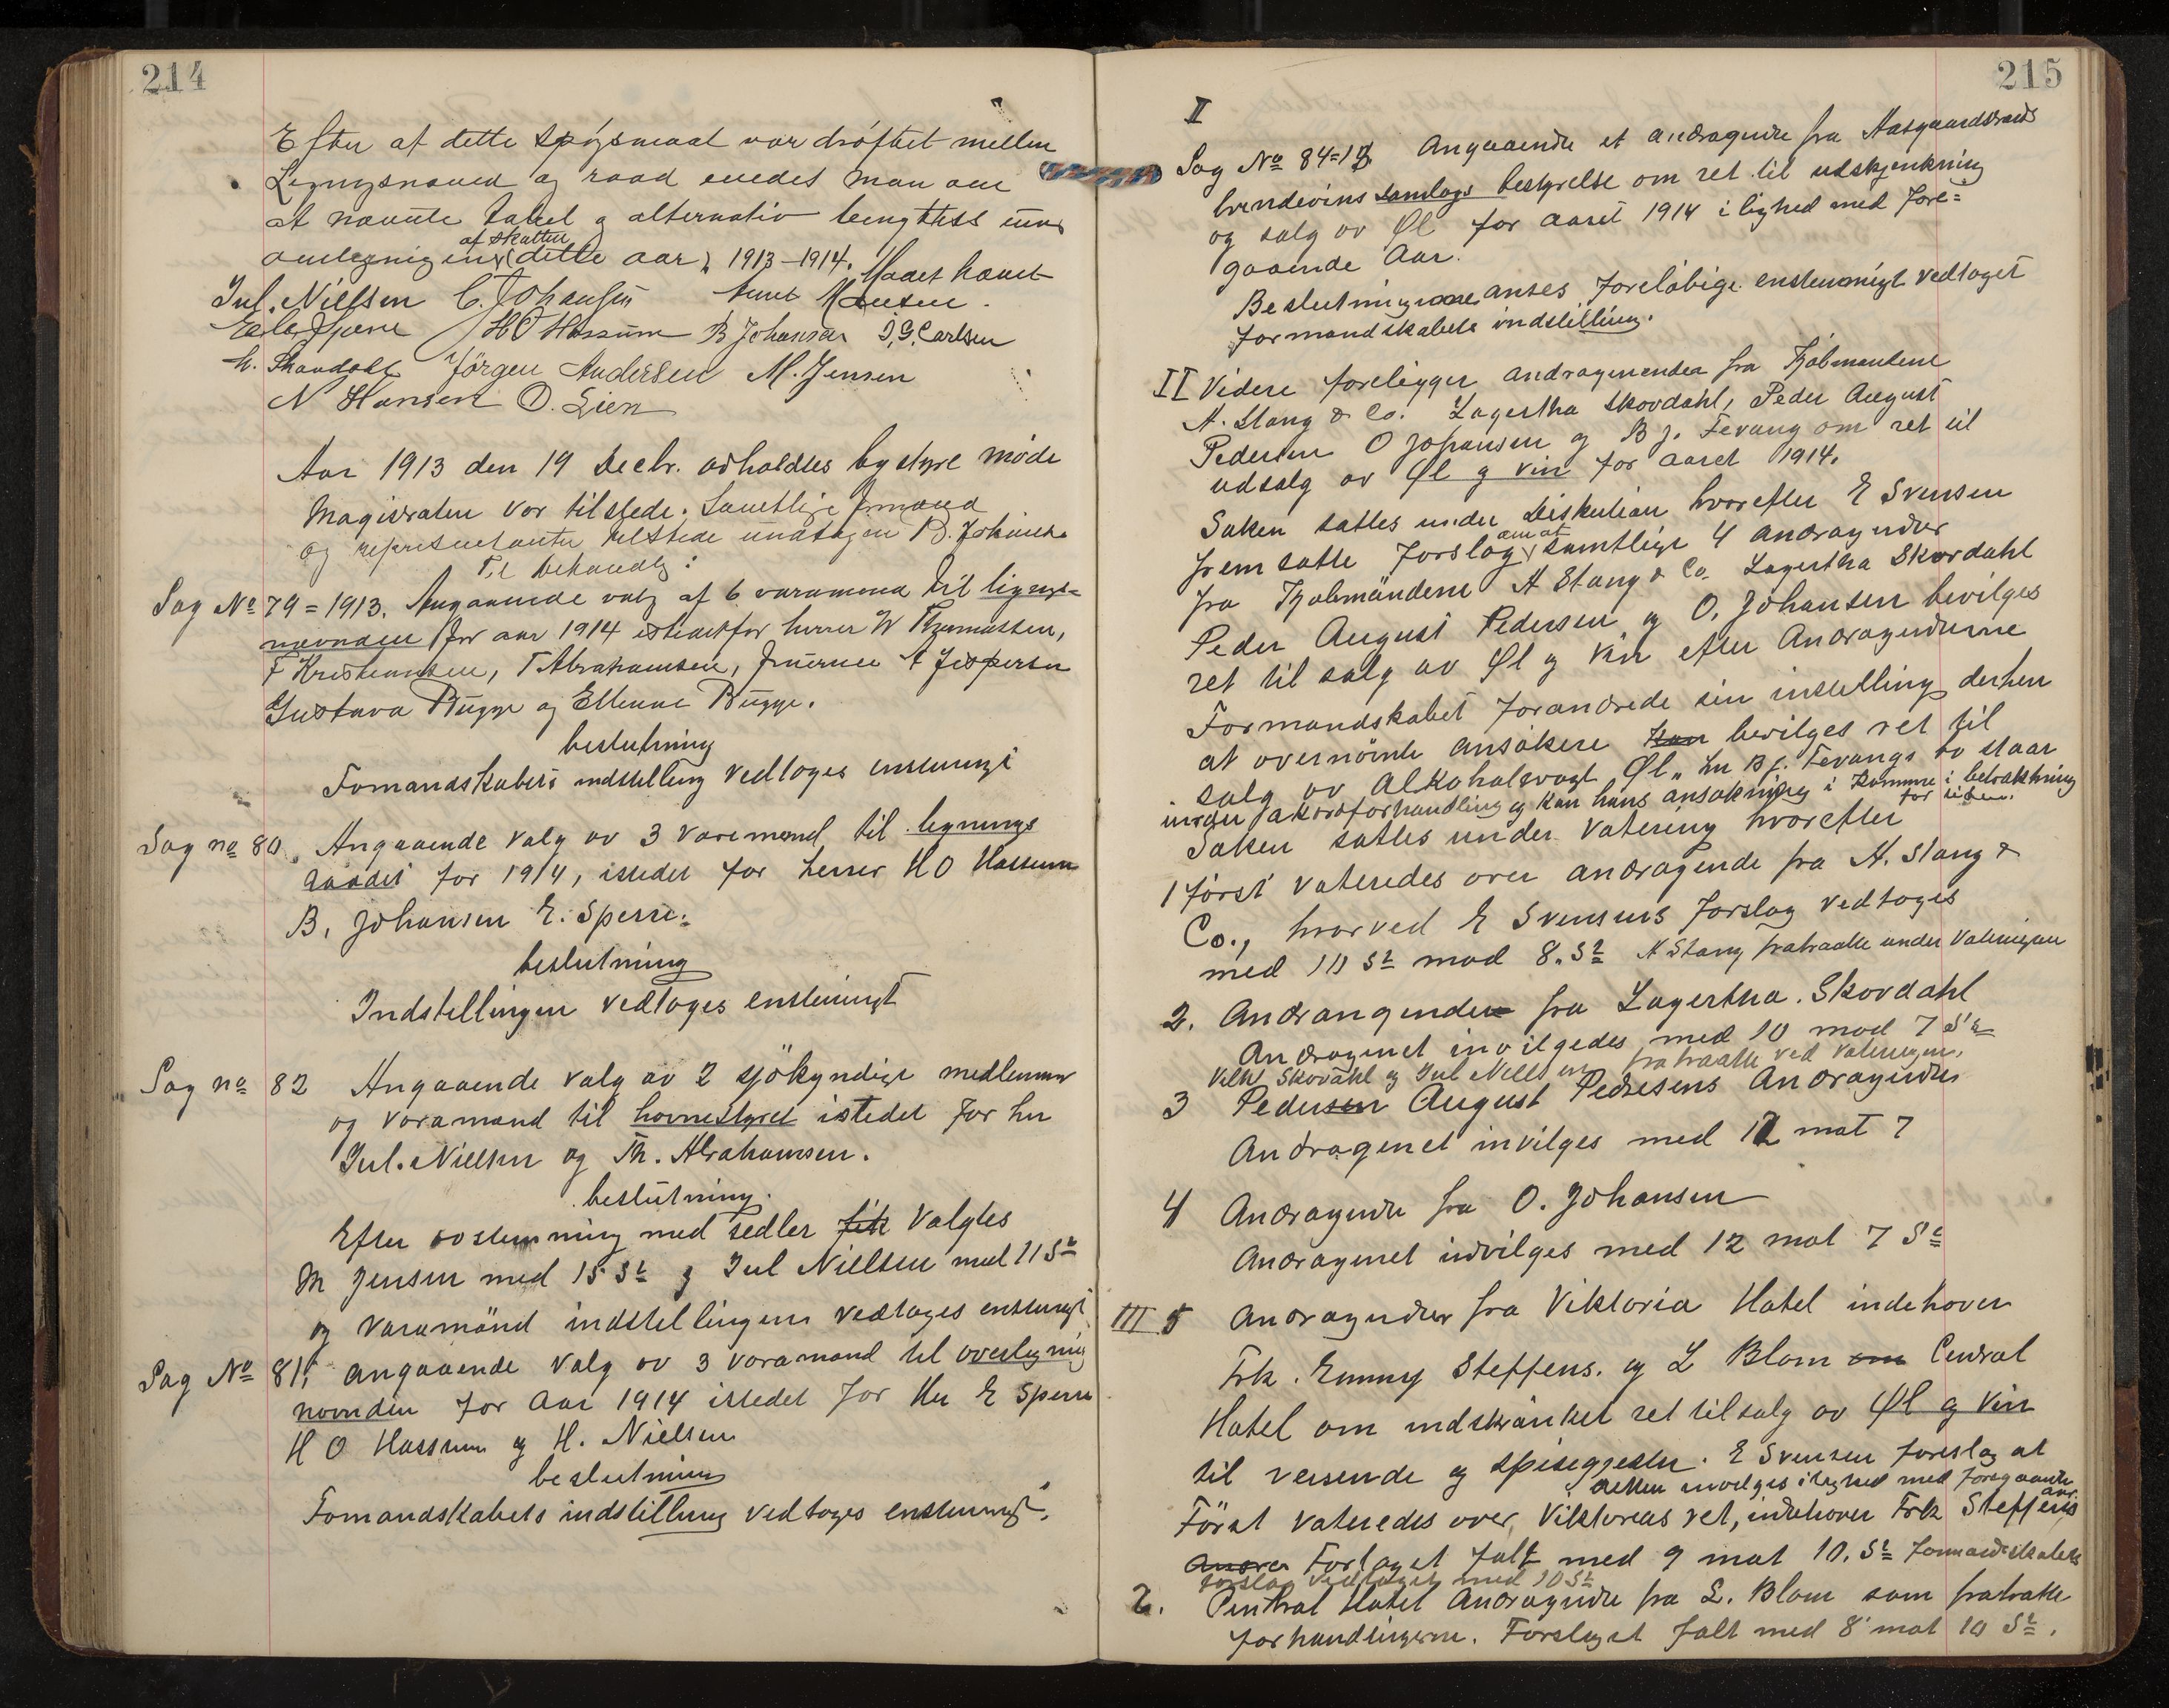 214
Efter at dette spøgsmaal var drøftet mellem
Ligningsnævnd og raad enedes man om
at nævnte tabel og alternativ benyttes
af skatten
omlegningen dette aar 1913-1914. Mødet hævet
Jul. Nielsen C. Johansen Hansen.
H O Hassum B Johansen J. G. Carlsen
Jørgen Andersen M. Jensen
N Hansen O. Lien
Aar 1913 den 19 Decbr. avholdtes bystyre møde
Magistraten var tilstede. Samtlige formænd
og representanter tilstede undtagen B. Johansen
Til behandlg:
Sag No 79=1913. Angaaende valg af 6 varamænd til lignings-
nævnden for aar 1914 istedetfor herrer W Thomassen,
F Kristiansen, T. Abrahamsen, fruerne A Jespersen
Gustava Bugge og Ellenne Bugge.
beslutning
Fomandskabets indstilling vedtoges enstemigt
Sag no 80. Angaaende valg av 3 varemænd til lignings
raadet for 1914, istedet for herrer H O Hassum
B. Johansen E. Sperre.
beslutning
Indstellingen vedtoges enstemigt
Sag no 82 Angaaende valg av 2 sjökyndige medlemmer
og varamænd til havnestyret istedet for hr
Jul. Nielsen og Th. Abrahamsen.
beslutning.
Efter avstemning med sedler fik valgtes
M Jensen med 15 St og Jul Nielsen med 11 St
og varamänd indstellingens vedtoges enstemigt
Sag No 81, angaaende valg av 3 varamænd til overligning
novnden for aar 1914 istedet for Hr E Sperre
H O Hassum og H. Nielsen
beslutning
Fomandskabets indstilling vedtoges enstemigt.
215
II
Sag No 84=13 Angaaende et andragende fra Aasgaardstrands
brendevins samlags bestyrelse om ret til udskjenkning
og salg av Øl for aaret 1914 i lighed med fore=
gaaende Aar.
Beslutningene anses foreløbige enstemmigt vedtaget
formandskabets indstilling.
II Videre foreligger andragenender fra Kjøbmændene
A. Stang & Co. Lagertha Skovdahl, Peder August
Pedersen O Johansen og B J. Fevang om ret til
udsalg av Øl og vin for aaret 1914.
Saken sattes under Diskution hvorefter E Svensen
om at
fremsatte forslag samtlige 4 andragender
fra Kjøbmändene A Stang & Co. Lagertha Skovdahl
Peder August Pedersen og O. Johansen bevilges
ret til salg av Øl og vin efter Andragenderne
Formandskabet forandrede sin instelling derhen
at overnömte ansøkere kan bevilges ret til
salg av Alkoholsvagt Øl, hr B J. Fevangs bo staar
under akordforhandling og kan hans ansøkning ei komme i betraktning
for tiden.
Saken sattes under Votering hvorefter
1 först voteredes over andragende fra A. Stang &
Co., hvorved E Svensens forslag vedtoges
med 10 St mod 8. St A Stang fratraatte under Voteringen
2. Andrangender fra Lagertha. Skovdahl
Andragenet invilgedes med 10 mod 7 St
Vilh Skovdahl og Jul Nielsen fratraatte ved Voteringen.
3 Pedersen August Pedresens Andragender
Andragenet invilges med 12 mot 7
4 Andragende fra O. Johansen
Andragenet indvilges med 12 mot 7 St
III 5 Andragender fra Viktoria Hotel indehaver
Frk. Emmy Steffens. og L Blom om Central
Hotel om indskränket ret til salg av Øl og Vin
til reisende og spisegjester. E Svensen foreslog at
retten invelges i lighed med foregaaende
aar.
Först voteredes over Viktorias ret, indehaver Frk Steffens
Andra Forslaget falt med 9 mot 10. St Formandskabets
forslag vedtaget med 10 St
2. Central Hotel Andragende fra L. Blom som fratratte
forhandlingerne. Forslaget falt med 8 mot 10 St.